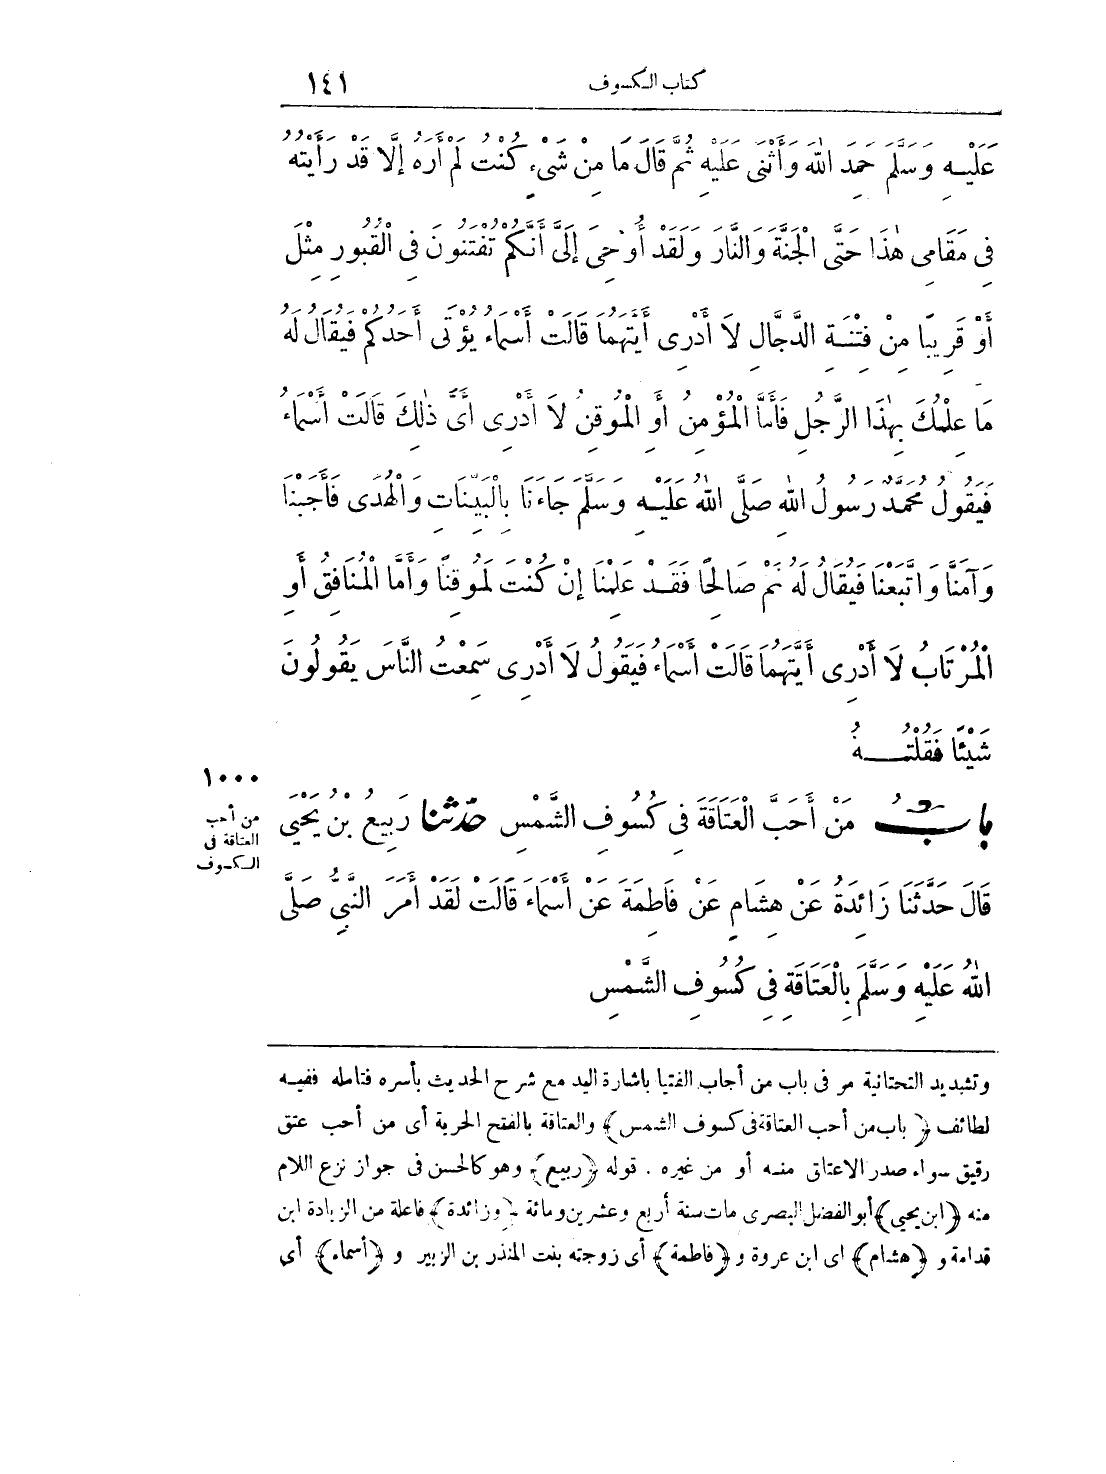 كتاب الكسوف ١٤١
عَلَيْهِ وَسَلَّمَ حَمِدَ اللهَ وَأَثْنَى عَلَيْهِ ثُمَّ قَالَ مَا مِنْ شَيْءٍ كُنْتُ لَمْ أَرَهُ إِلَّا قَدْ رَأَيْتُهُ
فِي مَقَامِى هٰذَا حَتَّى الْجَنَّةَ وَالنَّارَ وَلَقَدْ أُوحِىَ إِلَىَّ أَنَّكُمْ تُفْتَنُونَ فِى الْقُبُورِ مِثْلَ
أَوْ قَرِيبًا مِنْ فِتْنَةِ الدَّجَّالِ لَا أَدْرِى أَيَّتَهُمَا قَالَتْ أَسْمَاءُ يُؤْتَى أَحَدُكُمْ فَيُقَالُ لَهُ
مَا عِلْمُكَ بِهٰذَا الرَّجُلِ فَأَمَّا الْمُؤْمِنُ أَوِ الْمُوقِنُ لَا أَدْرِى أَىَّ ذٰلِكَ قَالَتْ أَسْمَاءُ
فَيَقُولُ مُحَمَّدٌ رَسُولُ اللهِ صَلَّى اللهُ عَلَيْهِ وَسَلَّمَ جَاءَنَا بِالْبَيِّنَاتِ وَالْهُدَى فَأَجَبْنَا
وَآمَنَّا وَاتَّبَعْنَا فَيُقَالُ لَهُ نَمْ صَالِحًا فَقَدْ عَلِمْنَا إِنْ كُنْتَ لَمُوقِنًا وَأَمَّا الْمُنَافِقُ أَوِ
الْمُرْتَابُ لَا أَدْرِى أَيَّتَهُمَا قَالَتْ أَسْمَاءُ فَيَقُولُ لَا أَدْرِى سَمِعْتُ النَّاسَ يَقُولُونَ
شَيْئًا فَقُلْتُهُ
١٠٠٠
من أحب
العتاقة فى
الكسوف
بَابُ مَنْ أَحَبَّ الْعَتَاقَةَ فِى كُسُوفِ الشَّمْسِ حَدَّثَنَا رَبِيعُ بْنُ يَحْيَى
قَالَ حَدَّثَنَا زَائِدَةُ عَنْ هِشَامٍ عَنْ فَاطِمَةَ عَنْ أَسْمَاءَ قَالَتْ لَقَدْ أَمَرَ النَّبِيُّ صَلَّى
اللهُ عَلَيْهِ وَسَلَّمَ بِالْعَتَاقَةِ فِى كُسُوفِ الشَّمْسِ
وتشديد التحتانية مر فى باب من أجاب الفتيا باشارة اليد مع شرح الحديث بأسره فتامله ففيه
لطائف ﴿باب من أحب العتاقة فى كسوف الشمس﴾ والعتاقة بالفتح الحرية أى من أحب عتق
رقيق سواء صدر الاعتاق منه أو من غيره . قوله ﴿ربيع﴾ وهو كالحسن فى جواز نزع اللام
منه ﴿ابن يحيى﴾ أبو الفضل البصرى مات سنة أربع وعشرين ومائة و﴿زائدة﴾ فاعلة من الزيادة ابن
قدامة و ﴿هشام﴾ اى ابن عروة و ﴿فاطمة﴾ أى زوجته بنت المنذر بن الزبير و ﴿أسماء﴾ أى